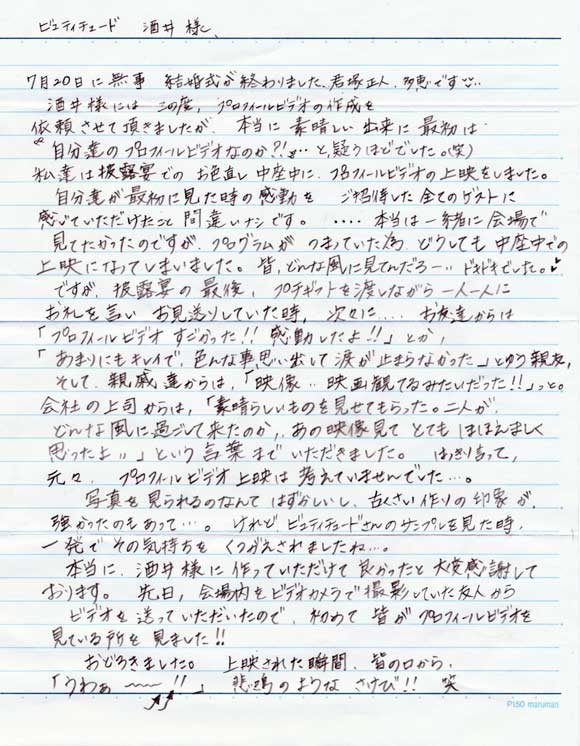 ビュティチュード　酒井 様、
7月20日に無事 結婚式が終わりました、君塚正人、多恵です
酒井様には この度、プロフィールビデオの作成を
依頼させて頂きましたが、本当に 素晴しい 出来に 最初は
"自分達のプロフィールビデオなのか?!"…と、疑うほどでした。(笑)
私達は 披露宴での お色直し 中座中に、プロフィールビデオの上映をしました。
自分達が最初に見た時の感動を ご招待した 全てのゲストに
感じていただけたこと 間違いナシです。 ‥‥本当は一緒に会場で
見てたかったのですが、プログラムが つまっていた為、どうしても 中座中での
上映になってしまいました。皆、どんな風に見てんだろー‥ ドキドキでした。
ですが、披露宴の最後、プチギフトを渡しながら 一人一人に
お礼を言い お見送りしていた時、次々に‥‥ お友達からは
「プロフィールビデオ すごかった!! 感動したよ!!」とか、
「あまりにもキレイで、色んな事思い出して 涙が 止まらなかった」とゆう親友、
そして、親戚達からは、「映像‥ 映画観てるみたいだった!!」っと。
会社の上司からは、「素晴らしいものを見せてもらった。二人が、
どんな風に過ごして来たのか、あの映像見て とても ほほえましく
思ったよ〃」という 言葉まで いただきました。 はっきり言って、
元々、プロフィールビデオ上映は 考えていませんでした…。
写真を見られるのなんて はずかしいし、古くさい作りの印象が、
強かったのもあって…。けれど、ビュティチュードさんのサンプルを見た時、
一発で その気持ちを くつがえされましたね…。
本当に、酒井様に作っていただけて 良かったと 大変感謝して
おります。先日、会場内をビデオカメラで撮影していた友人から
ビデオを送っていただいたので、初めて 皆が プロフィールビデオを
見ている所を 見ました!!
おどろきました。 上映された瞬間、皆の口から、
「うわぁ 〜〜 !!」 悲鳴のような さけび!! 笑
P150 maruman